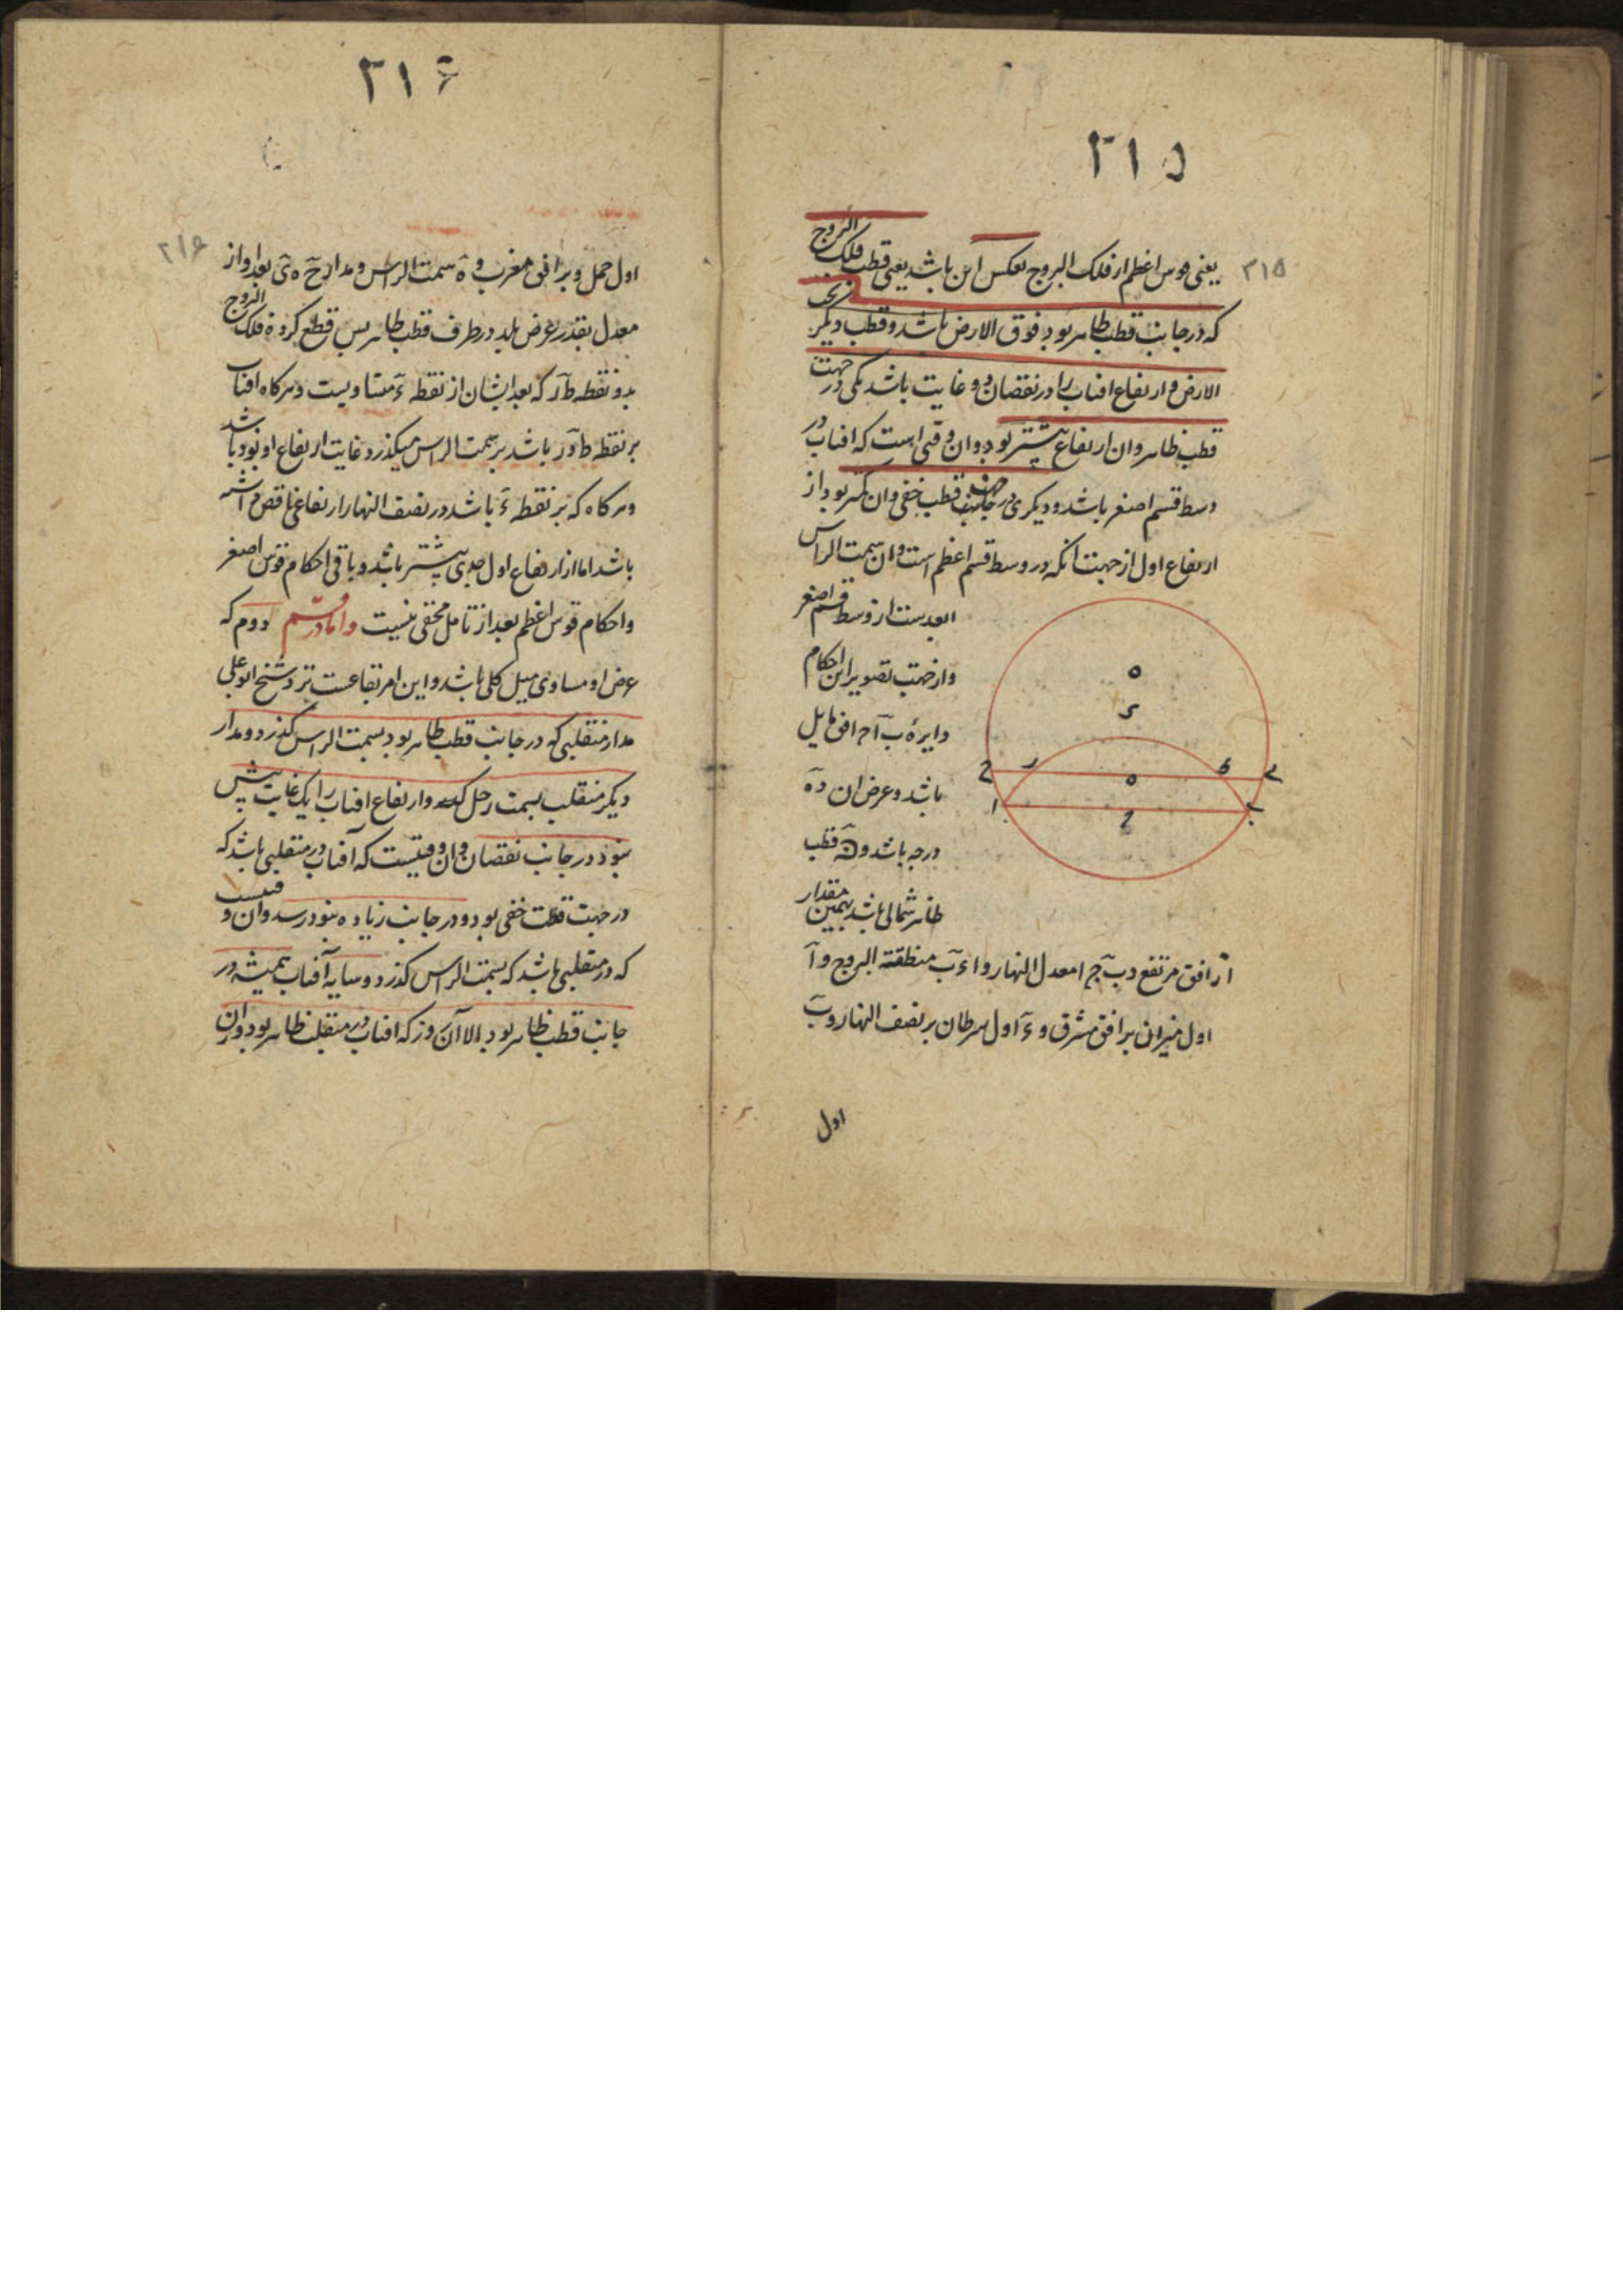 ۲۱۵
۲۱۵
یعنی قوس اعظم از فلک البروج بعکس این باشد یعنی قطب فلک البروج
که در جانب قطب ظاهر بود فوق الارض باشد و قطب دیگر تحت
الارض و ارتفاع افتاب را در نقصان دو غایت باشد یکی در جهت
قطب ظاهر وان ارتفاع بیشتر بود وان وقتی است که افتاب در
وسط قسم اصغر باشد و دیگری در جهت قطب خفی وان کمتر بود از
ارتفاع اول از جهت انکه در وسط قسم اعظم است وان سمت الراس
ابعدست از وسط قسم اصغر
و از جهت تصویر این احکام
دایرهٔ ب آ ح افق مایل
باشد و عرض ان ده
درجه باشد و قطب
ظاهر شمالی باشد بهمین مقدار
از افق مرتفع و ب ح ا معدل النهار و ا ء ب منطقة البروج و آ
اول میزان بر افق مشرق و ء اول سرطان بر نصف النهار و ب
اول
۲۱۶
۲۱۶
اول حمل و بر افق مغرب و ه سمت الراس و مدار ح ه ی بعد او از
معدل بقدر عرض بلد در طرف قطب ظاهر پس قطع کرده فلک البروج
بدو نقطه ط ر که بعد ایشان از نقطه ء متساویست و هرکاه افتاب
بر نقطه ط و ر باشد بر سمت الراس میکذرد و غایت ارتفاع او نود باشد
و هرکاه که بر نقطه ء باشد در نصف النهار ارتفاعی ناقص داشته
باشد اما از ارتفاع اول جدی بیشتر باشد و باقی احکام قوس اصغر
و احکام قوس اعظم بعد از تامل مخفی نیست و اما در قسم دوم که
عرض او مساوی میل کلی باشد و این امر بقاعست نزد شیخ ابو علی
مدار منقلبی که در جانب قطب ظاهر بود بسمت الراس کذرد و مدار
دیکر منقلب بسمت رجل کذرد و ارتفاع افتاب را یک غایت بیش
نبود در جانب نقصان وان وقتیست که آفتاب در منقلبی باشد که
در جهت قطب خفی بود و در جانب زیاده بنود رسد وان وقتیست
که در منقلبی باشد که بسمت الراس کذرد و سایه آفتاب همیشه در
جانب قطب ظاهر بود الا آن روز که افتاب در منقلب ظاهر بود و دران